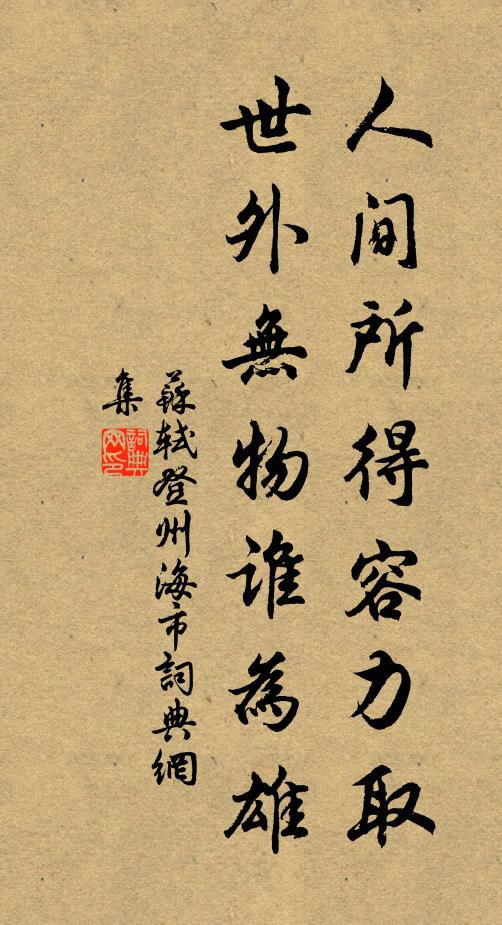 人間所得容力取
世外無物谁為雄
蘇軾登州海市詞典網
集
詞典網印